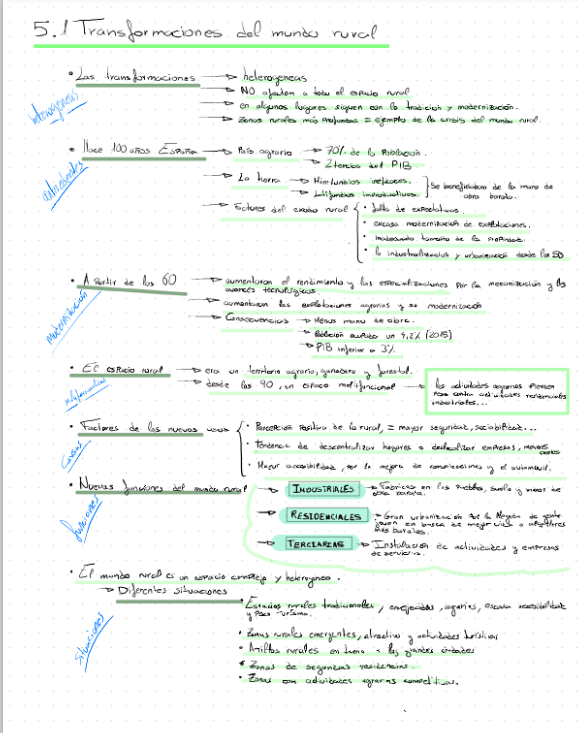 5.1 Transformaciones del mundo rural
heterogeneas
• Las transformaciones → heterogeneas
→ NO afectan a todo el espacio rural
→ en algunos lugares siguen con la tradición y modernización.
→ Zonas rurales más profundas = ejemplo de la crisis del mundo rural.
antecedentes
• Hace 100 años España → País agrario → 70% de la Población.
→ 2 tercios del PIB
→ La tierra → Minifundios ineficaces.
→ Latifundios improductivos } Se beneficiaban de la mano de
obra barata.
→ Factores del exodo rural { • falta de expectativas.
• escasa modernización de explotaciones.
• inadecuado tamaño de la propiedad.
• la industrialización y urbanización desde los 50
Modernización
• A partir de los 60 → aumentaron el rendimiento y las especializaciones por la mecanización y los
avances tecnológicos
→ aumentaron las explotaciones agrarias y su modernización
→ Consecuencias → Menos mano de obra.
→ Población 4,2% (2015)
→ PIB inferior a 3%.
multifuncional
• El espacio rural → era un territorio agrario, ganadero y forestal.
→ desde los 90, un espacio multifuncional → las actividades agrarias pierden
peso contra actividades residenciales
industriales...
Causas
• Factores de los nuevos usos { • Percepción positiva de lo rural, = mayor seguridad, sociabilidad...
• Tendencia de descentralizar hogares o deslocalizar empresas, menores
costes
• Mayor accesibilidad, por la mejora de comunicaciones y el automovil.
funciones
• Nuevas funciones del mundo rural → INDUSTRIALES → Fabricas en los pueblos, suelo y mano de
obra barata.
→ RESIDENCIALES → Gran urbanización por la llegada de gente
joven en busca de mejor vida o alquileres
más baratos.
→ TERCIARIAS → Instalación de actividades y empresas
de servicios.
situaciones
• El mundo rural es un espacio complejo y heterogeneo.
→ Diferentes situaciones
• Espacios rurales tradicionales, envejecidos, agrarios, escasa accesibilidad
y poco turismo.
• Zonas rurales emergentes, atractivo y actividades turísticas
• Anillos rurales en torno a las grandes ciudades
• Zonas de segundas residencias.
• Zonas con actividades agrarias competitivas.